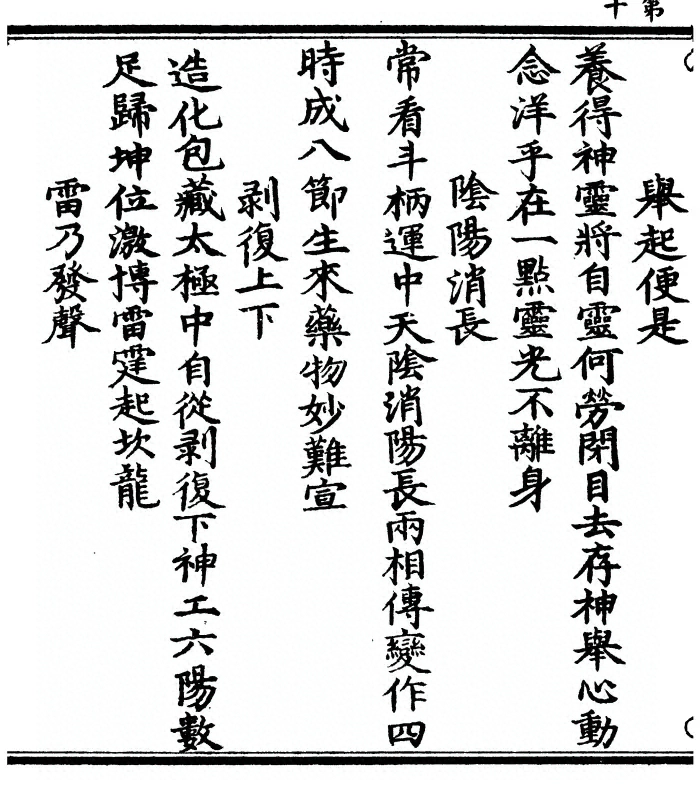 第十
舉起便是
養得神靈將自靈何勞閉目去存神舉心動
念洋乎在一點靈光不離身
陰陽消長
常看斗柄運中天陰消陽長兩相傳變作四
時成八節生來藥物妙難宣
剥復上下
造化包藏太極中自從剥復下神工六陽數
足歸坤位激博雷霆起坎龍
雷乃發聲